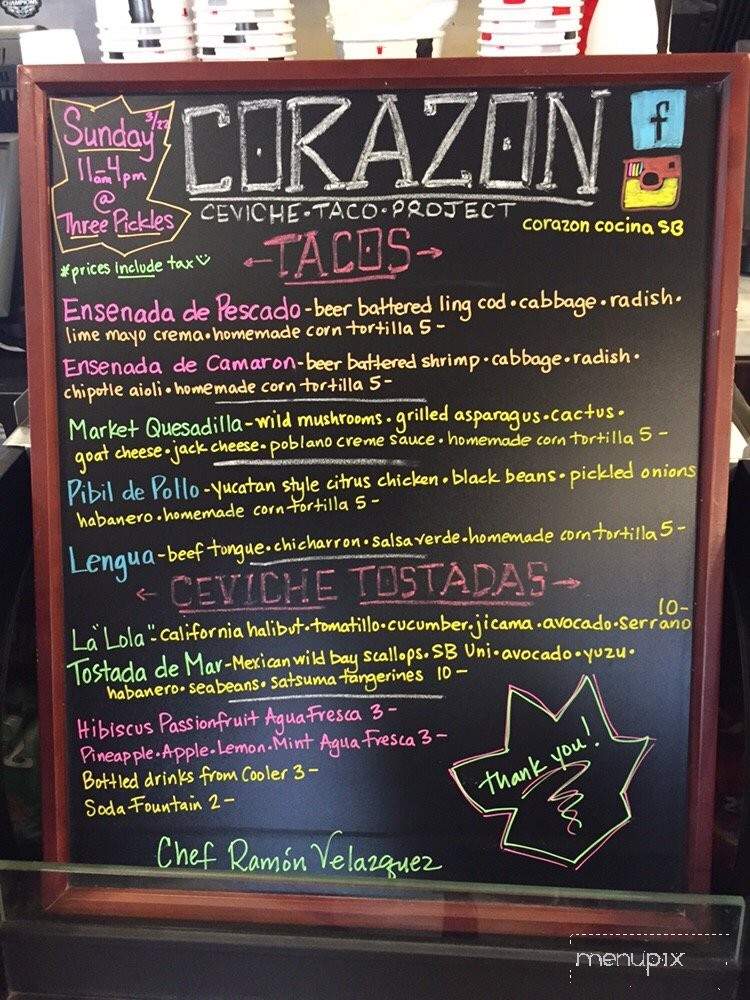 CHAMPIONS
Sunday 3/22
11am-4pm
@
Three Pickles
CORAZON
CEVICHE • TACO • PROJECT
f
corazon cocina SB
*prices include tax
TACOS
Ensenada de Pescado - beer battered ling cod • cabbage • radish •
lime mayo crema • homemade corn tortilla 5-
Ensenada de Camaron - beer battered shrimp • cabbage • radish •
chipotle aioli • homemade corn tortilla 5-
Market Quesadilla - wild mushrooms • grilled asparagus • cactus •
goat cheese • jack cheese • poblano creme sauce • homemade corn tortilla 5-
Pibil de Pollo - yucatan style citrus chicken • black beans • pickled onions
habanero • homemade corn tortilla 5-
Lengua - beef tongue • chicharron • salsa verde • homemade corn tortilla 5-
CEVICHE TOSTADAS
10-
La "Lola" - california halibut • tomatillo • cucumber • jicama • avocado • serrano
Tostada de Mar - Mexican wild bay scallops • SB Uni • avocado • yuzu •
habanero • seabeans • satsuma tangerines 10-
Hibiscus Passionfruit Agua Fresca 3-
Pineapple • Apple • Lemon • Mint Agua Fresca 3-
Bottled drinks from Cooler 3-
Soda Fountain 2-
thank you!
Chef Ramón Velazquez
menupix